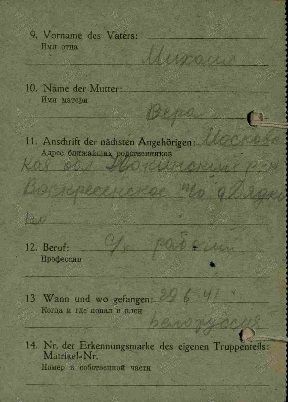 9. Vorname des Vaters:
Имя отца
Михаил
10. Name der Mutter:
Имя матери
Вера
11. Anschrift der nächsten Angehörigen: Московс
Адрес ближайших родственников
кая обл
Воскресенское
12. Beruf: рабочий
Профессия
13 Wann und wo gefangen: 29.6.41
Когда и где попал в плен
Белоруссия
14. Nr. der Erkennungsmarke des eigenen Truppenteils:
Matrikel-Nr.
Номер в собственной части